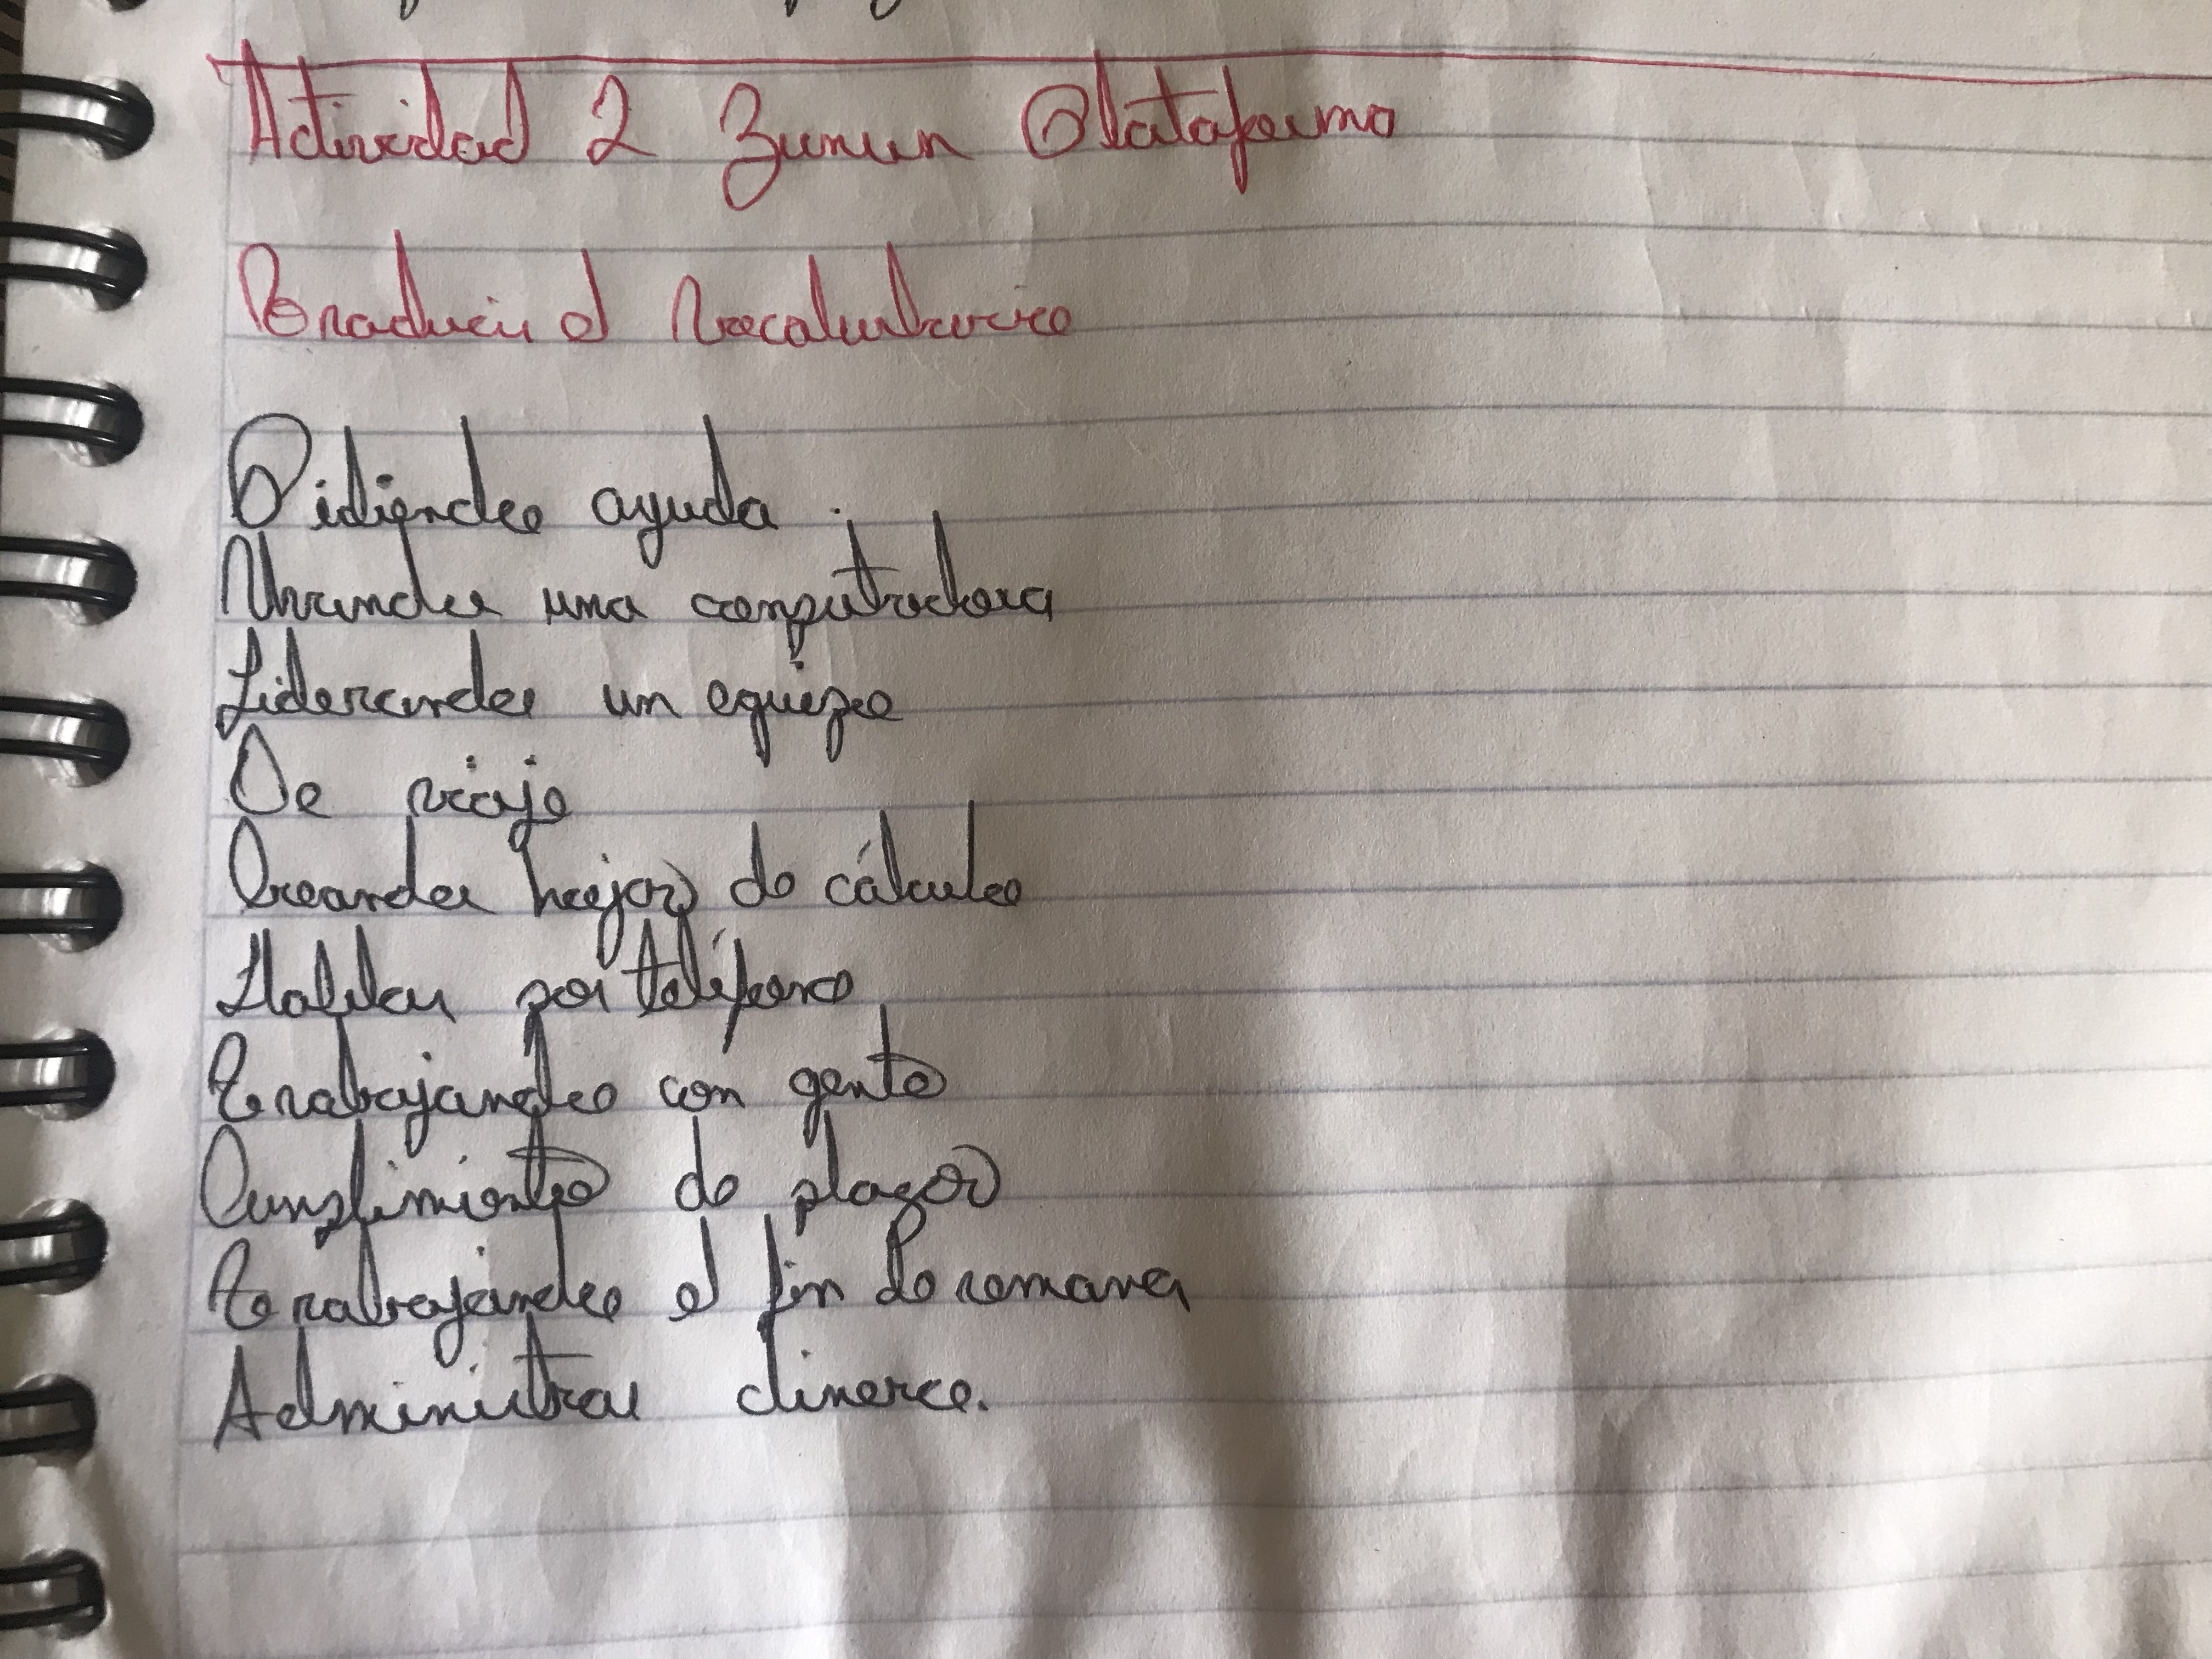 Actividad 2 Zunun Plataforma
Traducir el Vocabulario
Pidiendo ayuda
Usando una computadora
Liderando un equipo
De viaje
Creando hojas de cálculo
Hablar por teléfono
Trabajando con gente
Cumplimiento de plazos
Trabajando el fin de semana
Administrar dinero.